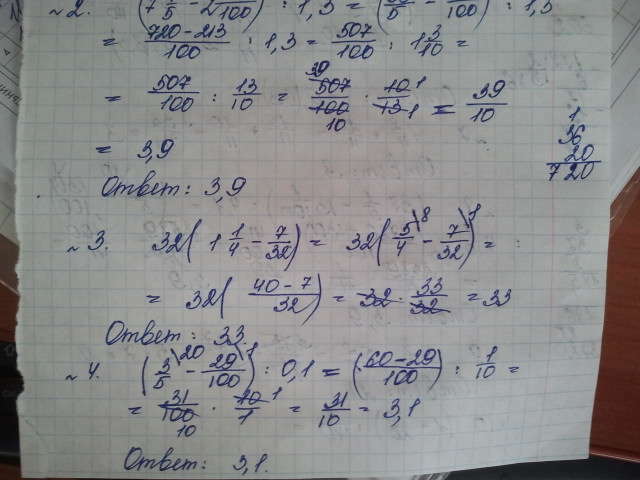 ~ 2. (7 1/5 - 2 /100) : 1,3 = ( /5 - /100) : 1,3
= 720-213/100 : 1,3 = 507/100 : 1 3/10 =
= 507/100 : 13/10 = 39 507/100 10 · 10 1/13 1 = 39/10
= 3,9
1
36
20
720
Ответ: 3,9
~ 3. 32(1 1/4 - 7/32) = 32(5/4 \8 - 7/32 \1) =
= 32(40-7/32) = 32 · 33/32 = 33
Ответ: 33.
~ 4. (3/5 \20 - 29/100 \1) : 0,1 = (60-29/100) : 1/10 =
= 31/100 10 · 10 1/1 = 31/10 = 3,1
Ответ: 3,1.